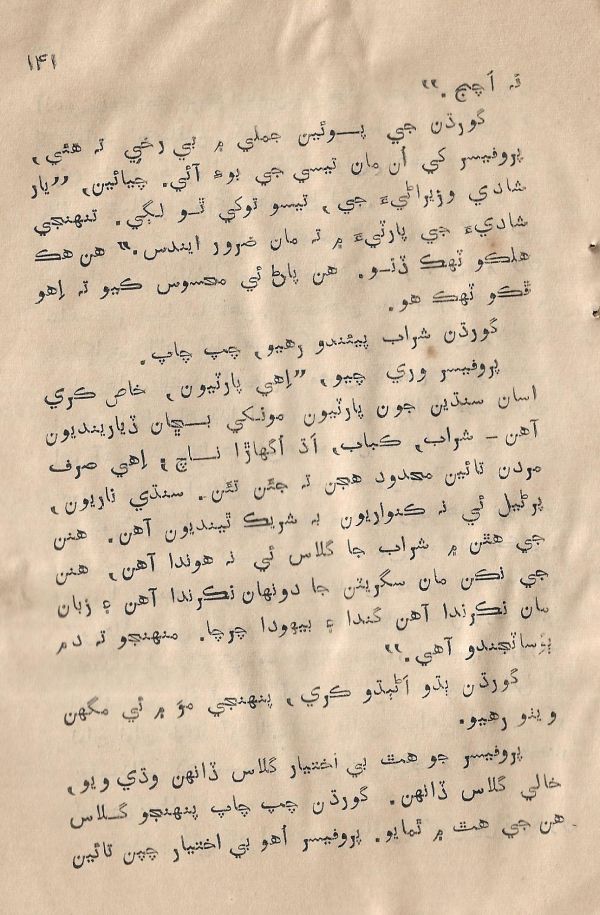 ۱۴۱
ته اَچج.“
گورڌن جي پوئين جملي ۾ بي رخي ته هئي،
پروفيسر کي اُن مان تيسي جي بوءِ آئي. چيائين، ”يار
شادي وزيراڻيءَ جي، تيسو توکي ٿو لڳي. تنهنجي
شاديءَ جي پارٽيءَ ۾ ته مان ضرور ايندس.“ هن هڪ
هلڪو ٽهڪ ڏنو. هن پاڻ ئي محسوس ڪيو ته اِهو
ڦڪو ٽهڪ هو.
گورڌن شراب پيئندو رهيو، چپ چاپ.
پروفيسر وري چيو، ”اِهي پارٽيون، خاص ڪري
اسان سنڌين جون پارٽيون مونکي بڇان ڏيارينديون
آهن – شراب، ڪباب، اَڌ اُگهاڙا ناچ؛ اِهي صرف
مردن تائين محدود هجن ته جئن تئن. سنڌي ناريون،
پرڻيل ئي نه ڪنواريون به شريڪ ٿينديون آهن. هنن
جي هٿن ۾ شراب جا گلاس ئي نه هوندا آهن، هنن
جي نڪن مان سگريٽن جا دونهان نڪرندا آهن ۽ زبان
مان نڪرندا آهن گندا ۽ بيهودا چرچا. منهنجو ته دم
ٻوساٽجندو آهي.“
گورڌن ٻڌو اَڻٻڌو ڪري، پنهنجي مزَ ۾ ئي مگهن
ويٺو رهيو.
پروفيسر جو هٿ بي اختيار گلاس ڏانهن وڌي ويو،
خالي گلاس ڏانهن. گورڌن چپ چاپ پنهنجو گلاس
هن جي هٿ ۾ ٿمايو. پروفيسر اُهو بي اختيار چپن تائين